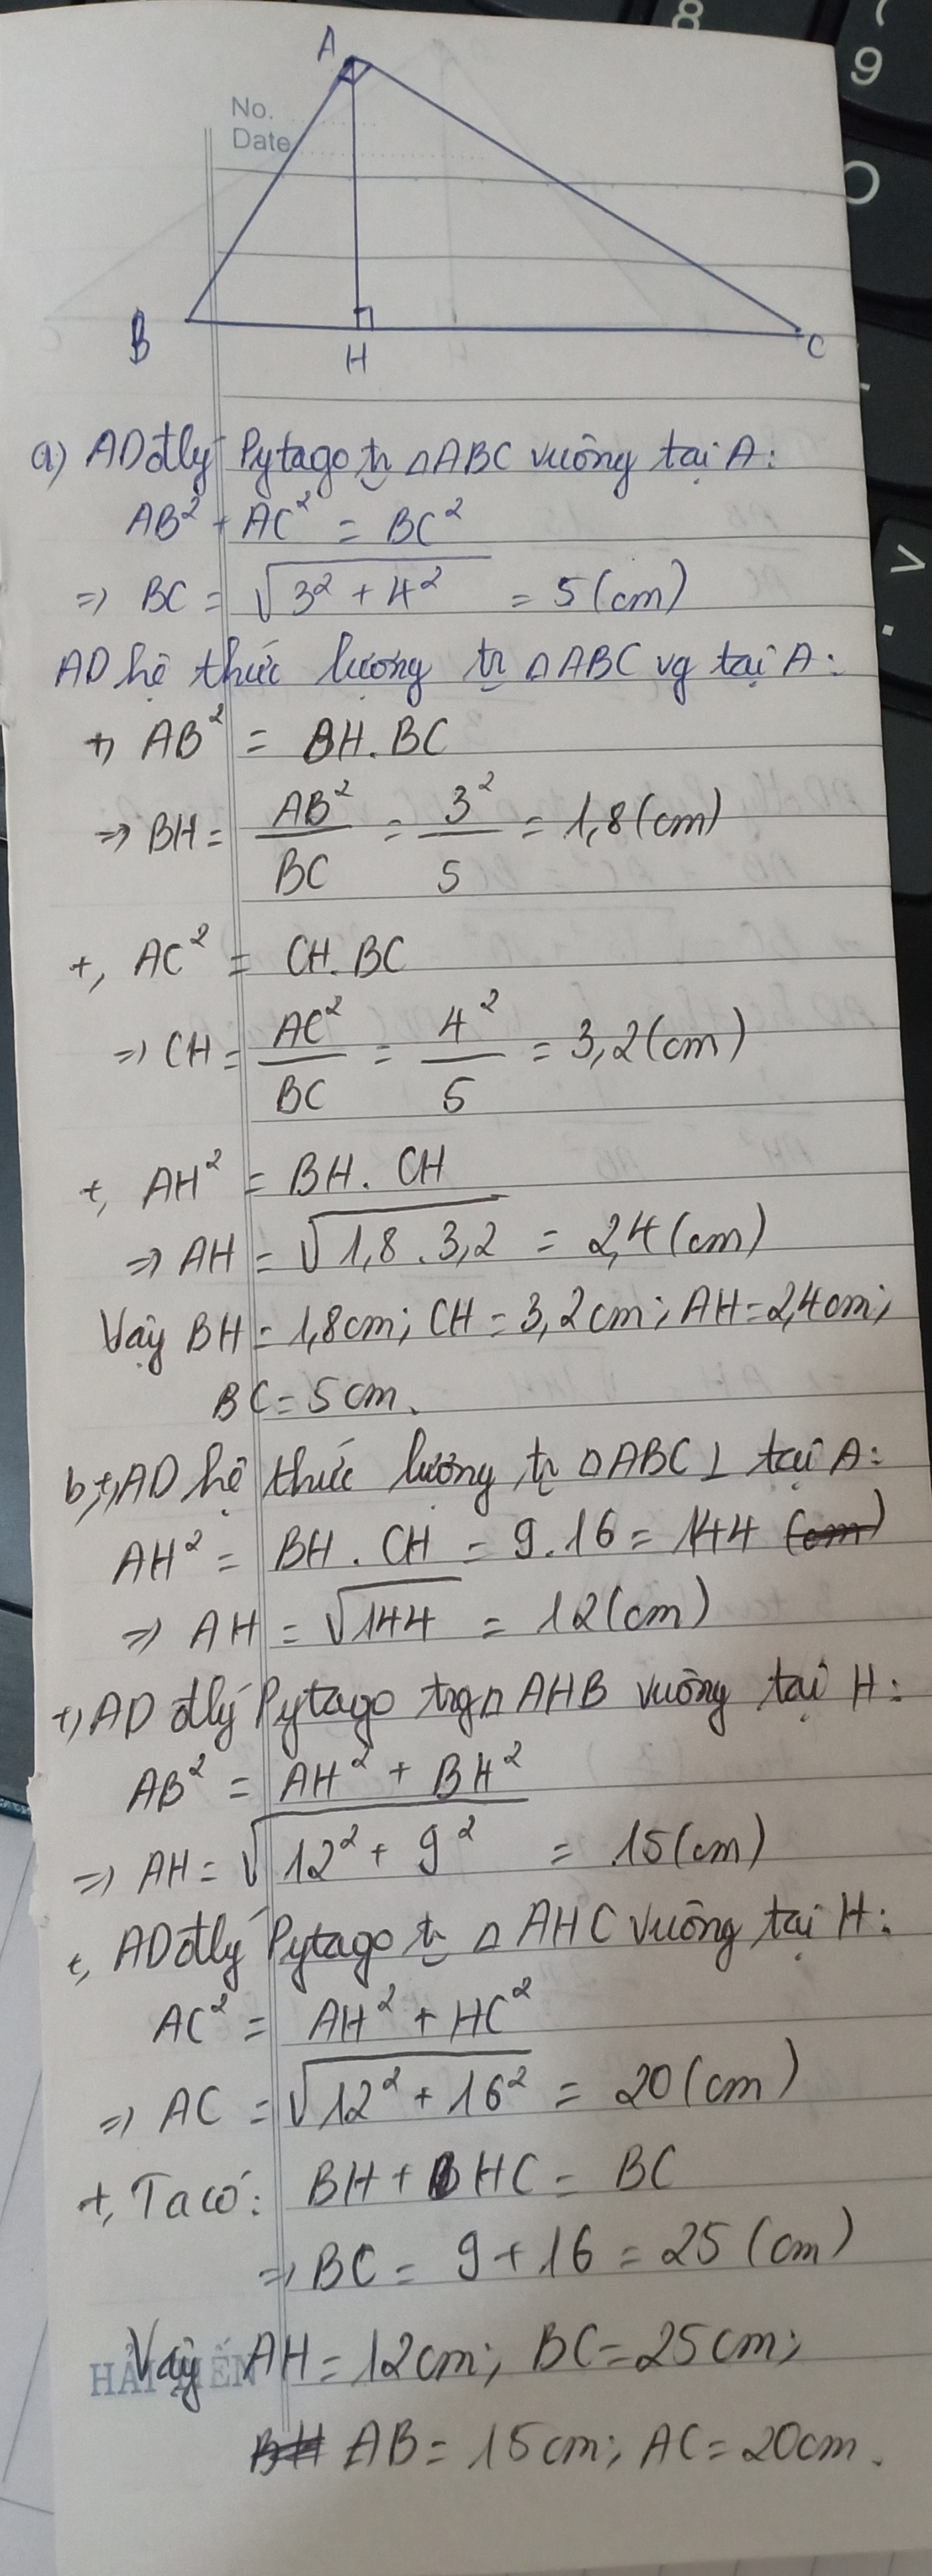 8
9
No.
Date
A
B
H
C
a) AD đlý Pytago tr △ABC vuông tại A:
AB² + AC² = BC²
=> BC = √3² + 4² = 5 (cm)
AD hệ thức lượng tr △ABC vg tại A:
+, AB² = BH. BC
=> BH = AB²/BC = 3²/5 = 1,8 (cm)
+, AC² = CH. BC
=> CH = AC²/BC = 4²/5 = 3,2 (cm)
+, AH² = BH. CH
=> AH = √1,8 . 3,2 = 2,4 (cm)
Vậy BH = 1,8cm; CH = 3,2cm; AH = 2,4cm;
BC = 5cm.
b, +, AD hệ thức lượng tr △ABC ⊥ tại A:
AH² = BH . CH = 9.16 = 144 (cm)
=> AH = √144 = 12 (cm)
+, AD đlý Pytago trg △ AHB vuông tại H:
AB² = AH² + BH²
=> AH = √12² + 9² = 15 (cm)
+, AD đlý Pytago tr △ AHC vuông tại H:
AC² = AH² + HC²
=> AC = √12² + 16² = 20 (cm)
+, Ta có: BH + HC = BC
=> BC = 9 + 16 = 25 (cm)
Vậy AH = 12cm; BC = 25cm;
HẢI TIẾN
BH AB = 15cm; AC = 20cm.